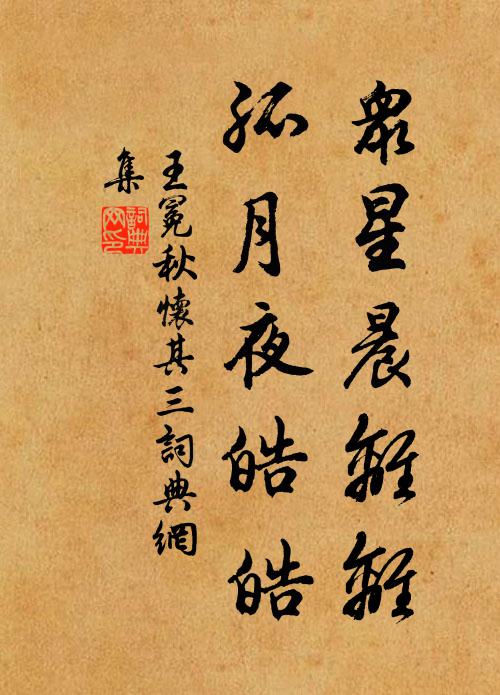 眾星晨離離
孤月夜皓皓
王冕秋懷其三詞典網
集
詞典
网印